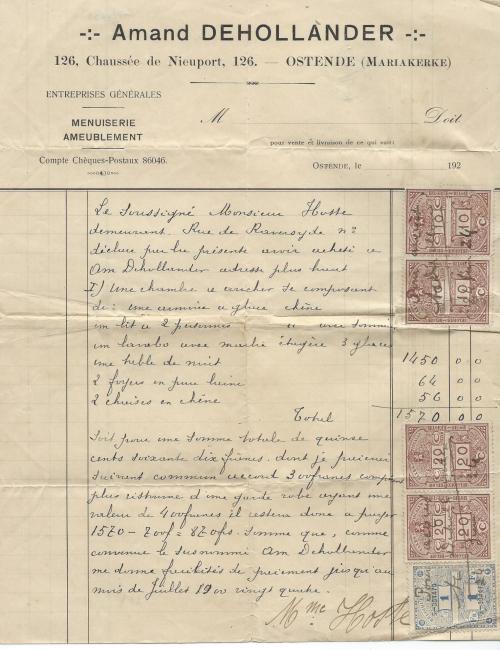 -:- Amand DEHOLLANDER -:-
126, Chaussée de Nieuport, 126. — OSTENDE (MARIAKERKE)
ENTREPRISES GÉNÉRALES
MENUISERIE
AMEUBLEMENT
M Doit
pour vente et livraison de ce qui suit:
Compte Chèques-Postaux 86046.
OSTENDE, le 192
Le soussigné Monsieur Hoste
demeurant Rue de Ramscyde n°
déclare par la présente avoir acheté a
Am Dehollander adresse plus haut
I) Une chambre a coucher se composant
de: une armoire a glace chêne
un lit a 2 personnes " avec somm
un lavabo avec marbre étagère 3 glaces
une table de nuit 1450 00
2 foyers en pure laine 64 00
2 chaises en chêne 56 00
Total 1570 00
Soit pour une somme totale de quinze
cents soixante dix frans. dont je paierai
suivant commun accord 300 francs comptant
plus ristourne d'une garde robe ayant une
valeur de 400 francs il restera donc a payer
1570 - 700 f = 870 fs. Somme que, comme
convenue le susnommé Am Dehollander
me donne facilités de paiement jusqu'au
mois de Juillet 1900 vingt quatre.
Mme Hoste
10 C 10
10 C 10
20 C 20
20 C 20
1 1